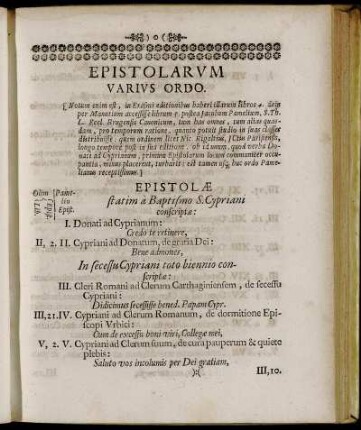 0
EPISTOLARVM
VARIUS ORDO.
[Notum enim est, in Erasmi editionibus haberi tantum libros 4. dein
per Manutium accessisse librum 5. postea Jacobum Pamelium, S. Th.
L. Eccl. Brugensis Canonicum, tum hos omnes, tum alios quos-
dam, pro temporum ratione, quanto potuit studio in suas classes
distribuisse: quem ordinem licet Nic. Rigaltius, JCtus Parisiensis,
longo tempore post in sua editione, ob id unum, quod verba Do-
nati ad Cyprianum, primum Epistolarum locum communiter occu-
pantia, minus placerent, turbarit; est tamen usq; huc ordo Pame-
lianus receptissimus.]
EPISTOLÆ
Olim
Epist.
Pame-
lio
Epist.
statim à Baptismo S. Cypriani
conscriptæ:
I. Donati ad Cyprianum:
Credo te retinere,
II, 2. II. Cypriani ad Donatum, de gratia Dei:
Bene admones,
In secessu Cypriani toto biennio con-
scriptæ:
III. Cleri Romani ad Clerum Carthaginiensem, de secessu
Cypriani:
Didicimus secessisse bened. Papam Cypr.
III, 21. IV. Cypriani ad Clerum Romanum, de dormitione Epi-
scopi Urbici:
Cum de excessu boni viri, Collegæ mei,
V, 2. V. Cypriani ad Clerum suum, de cura pauperum & quiete
plebis:
Saluto vos incolumis per Dei gratiam,
):( III, 10.